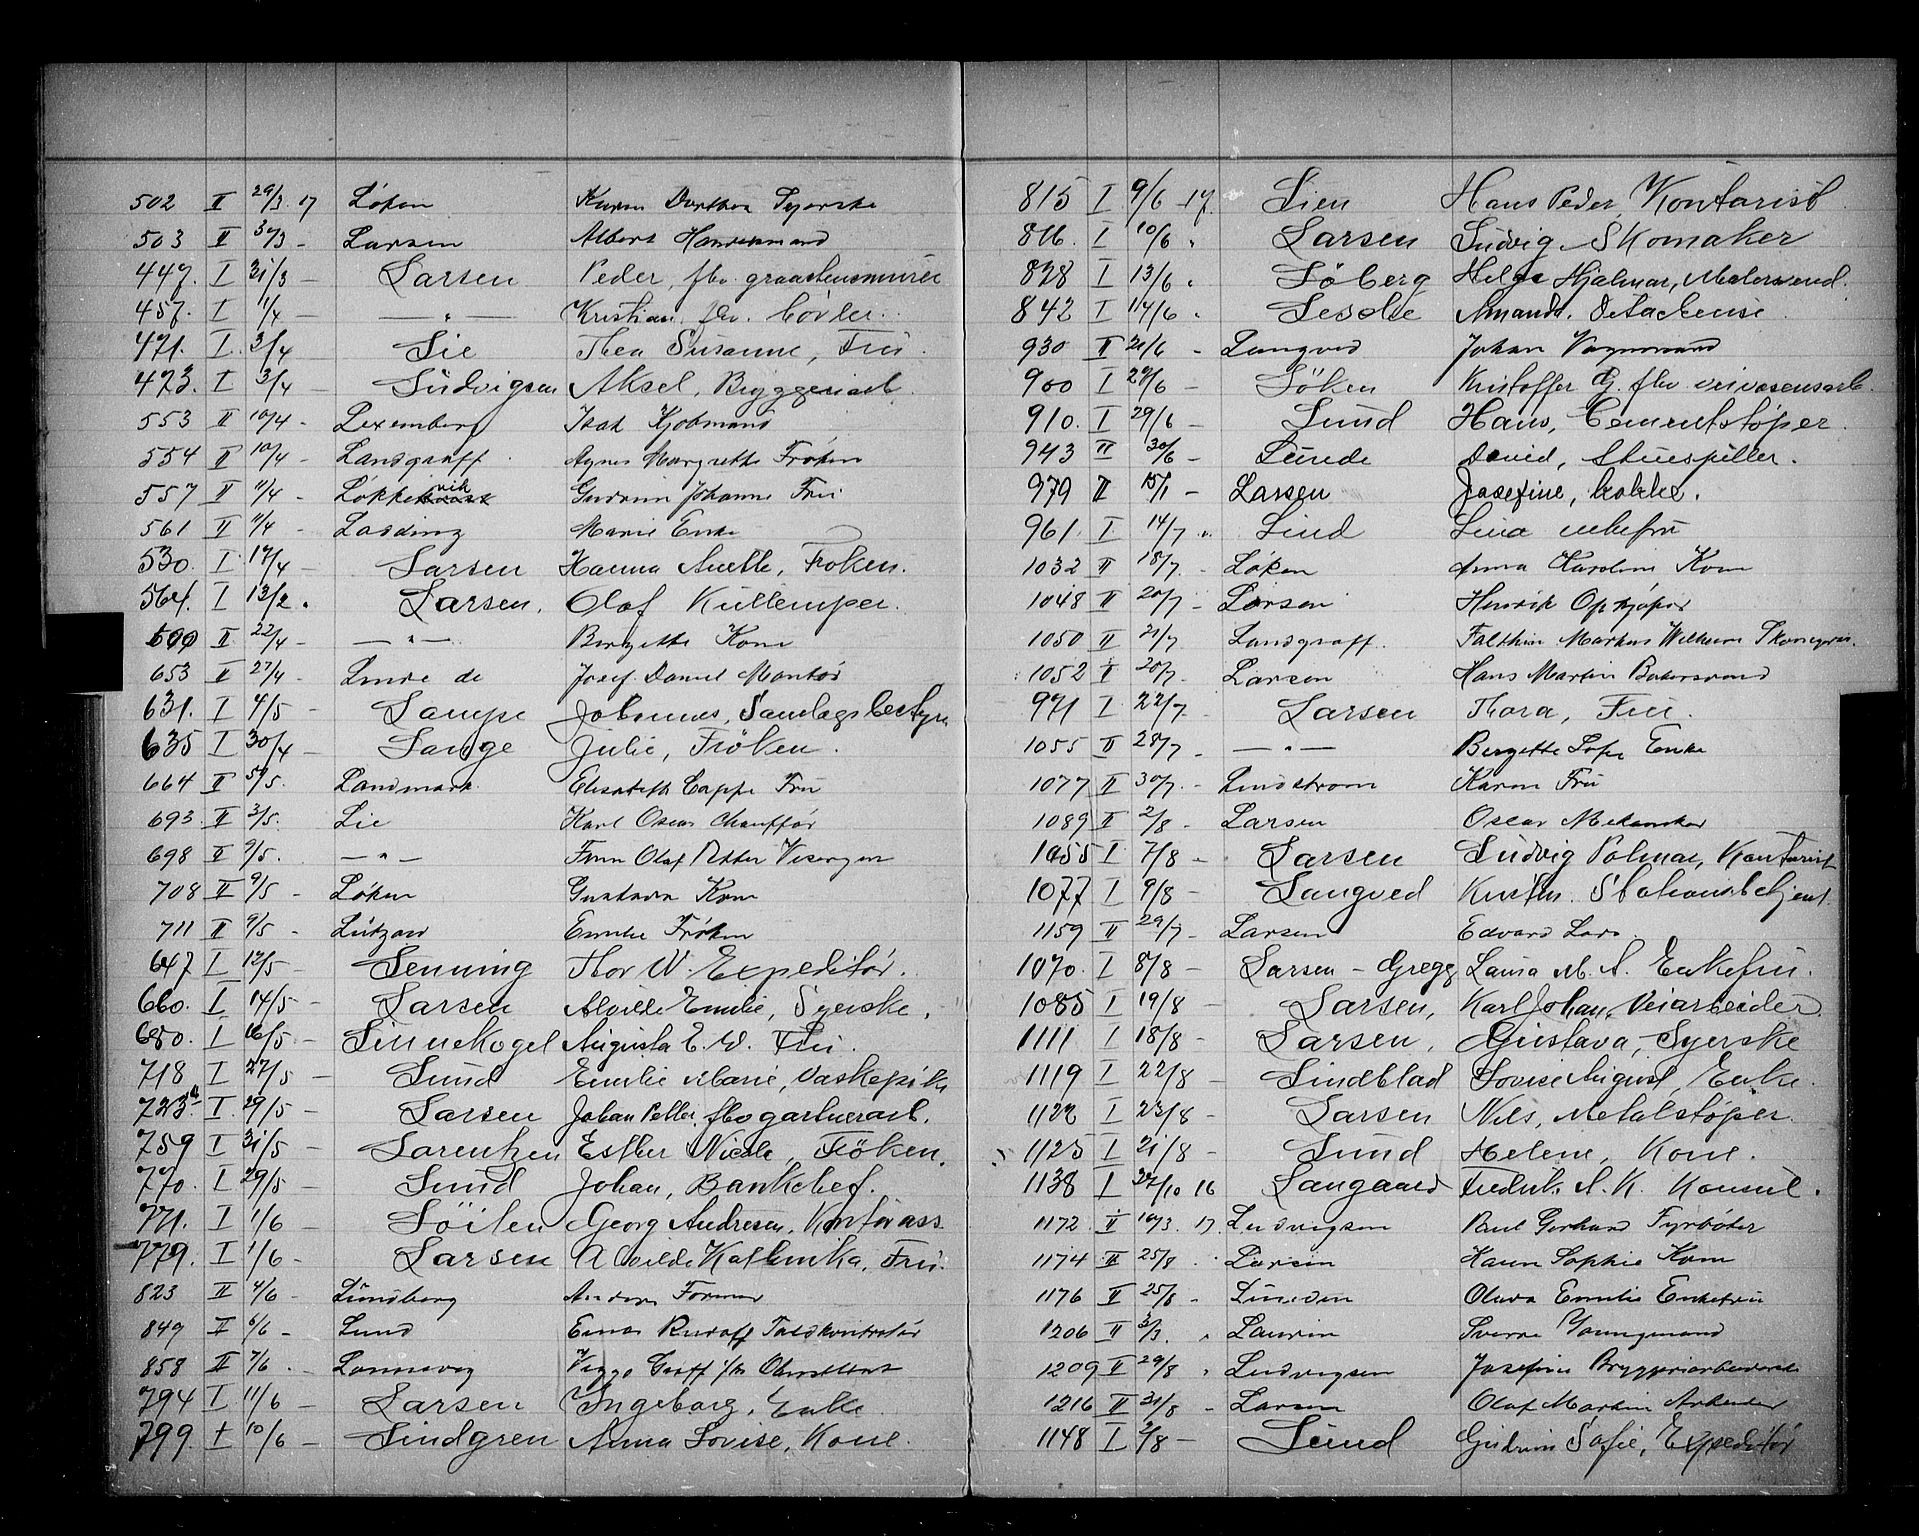 502 II 29/3 17 Løken Karen Dorthea Syerske
503 II 30/3 - Larsen Albert Handelsmand
447. I 31/3 - Larsen Peder, fhv. graastensmurer
457. I 1/4 - — " — Kristian, fhv. Bøvler.
471. I. 3/4 Lie Thea Susanne, Fru.
473. I 3/4 - Ludvigsen Aksel, Bryggeriarb.
553 II 10/4 - Lexemberg Isak Kjøbmand
554 II 10/4 - Landgraff Agnes Margrethe Frøken
557 II 11/4 - Løkkevik Gudrun Johanne Fru
561 II 11/4 - Lodding Marie Enke
530. I. 17/4 Larsen Hanna Anette, Frøken.
564. I 13/2 " Larsen, Olaf Kullemper.
600 II 22/4 — " — Bergitte Kone
653 II 27/4 - Linde de Josef Daniel Montør
631. I 4/5 - Lampe Johannes, Samlagsbestyrer
635 I 30/4 - Lange Julie, Frøken.
664 II 5/5. Landmark Elisabeth Cappe Fru
693. II 3/5. Lie Karl Oscar Chauffør
698 II 9/5. — " — Finn Olaf Petter Visergut
708 II 9/5 - Løken Gustava Kone
711 II 9/5 - Lützow Emilie Frøken
647 I 12/5 - Lenning Thor W. Expeditør.
660. I 14/5 - Larsen Alvilde Emilie, Syerske.
680. I 16/5. - Linnekogel Augusta E. W. Fru.
718 I 27/5 - Lund Emilie Marie, Vaskepike
723a I. 29/5 - Larsen Johan Petter, fhv gartnerarb.
759 I 31/5 - Larentzen Esther Nicole, Frøken.
770. I 29/5 - Lund Johan, Bankchef.
771. I 1/6 - Löiten Georg Andresen, Kontorass.
779. I 1/6 - Larsen Alvilde Kathinka, Fru.
823 II 4/6 - Lundberg Anders Former
849 II 6/6 - Lund Einar Rudolf Toldkontrolør
858 II 7/6 - Lonnevig Viggo Graff
794 I 11/6 - Larsen Ingeborg, Enke
799. I 10/6 - Lindgren Anna Lovise, Kone.
815 I 9/6 17. Lien Hans Peder, Kontorist
816. I 10/6 " Larsen Ludvig, Skomaker
828 I 13/6 " Løberg Helge Hjalmar, Malersvend.
842 I 14/6 " Lesche Amanda. Detachense.
930 II 21/6 - Langved Johan Vognmand
900 I 29/6 - Løken Kristoffer G. fhv. veivæsensarb.
910. I 29/6 - Lund Hans, Cementstøper.
943 II 30/6 - Lunde David, Skuespiller.
979 II 15/1 - Larsen Josefine,
961. I 14/7 " Lind Lina enkefru
1032 II 18/7. - Løken Anna Karoline Kone
1048 II 20/7 - Larsen Henrik Opkjøper
1050 II 21/7 - Landgraff. Falthin Markus Wilhelm
1052 II 20/7 - Larsen Hans Martin Bakersvend
971 I. 22/7 - Larsen Thora, Fru.
1055 II 28/7 - — " — Bergette Sofie Enke
1077 II 30/7. - Lindstrøm Karen Fru
1089 II 2/8 - Larsen Oscar Mekaniker
1055 I. 7/8 - Larsen Ludvig Volmar, Kontorist
1077 I 9/8 - Langved Kristen. Stationsbetjent.
1159 II 29/7 - Larsen Edvard Lars.
1070. I 8/8 - Larsen - Gregg Laura M. A. Enkefru.
1085 I 19/8 - Larsen, Karl Johan, Veiarbeider.
1111 I 18/8 - Larsen, Gustava, Syerske
1119 I 22/8 - Lindblad Lovise August, Enke.
1122 I 23/8 - Larsen Nils, Metalstøper.
1125 I 21/8 - Lund Helene, Kone.
1138 I 27/10 16 Langaard Fredrik A. K. Konsul.
1172 II 10/3. 17. Ludvigsen Paul Gerhard Fyrbøter
1174 II 25/8 " Larsen Karen Sophie Kone
1176 II 25/8 - Lunden Oluva Emilie Enkefru
1206 II 3/3. " Laurin Sverre Youngsmand
1209 II 29/8 " Ludvigsen Josefine Bryggeriarbeiderske
1216 II 31/8 - Larsen Olaf Martin Arbeider
1148 I 2/8 - Lund Gudrun Sofie, Expeditør